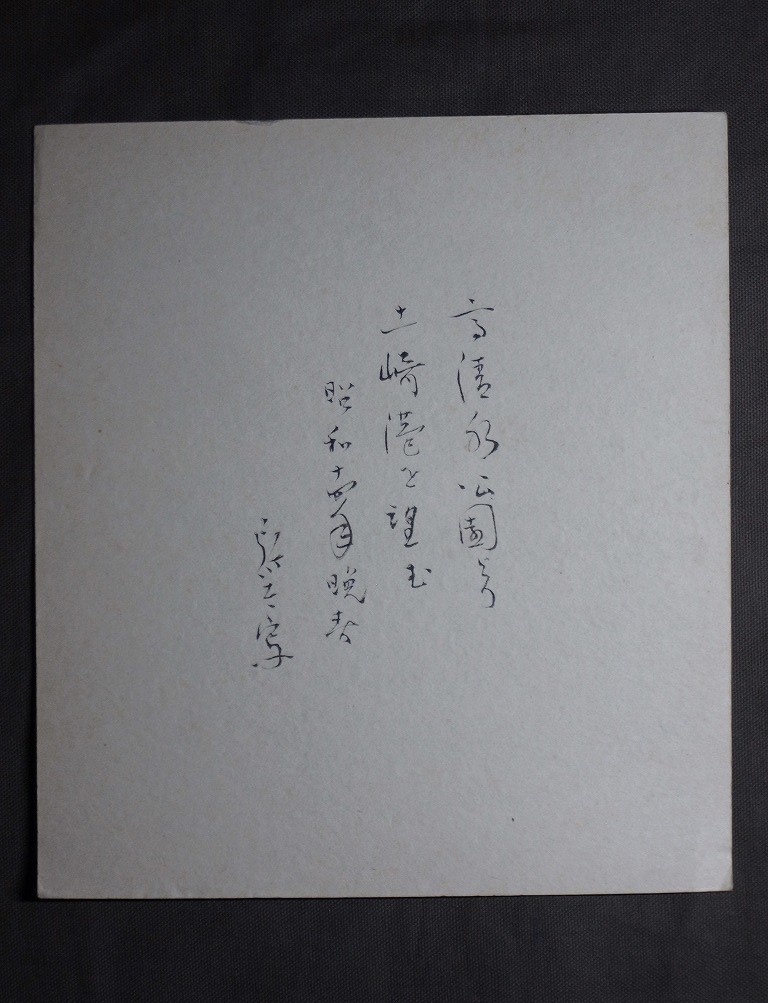 高清水公園より
土崎港を望む
昭和十四年晩春
写